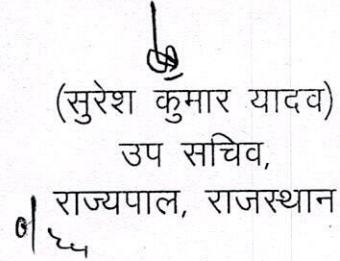 (सुरेश कुमार यादव)
उप सचिव,
राज्यपाल, राजस्थान